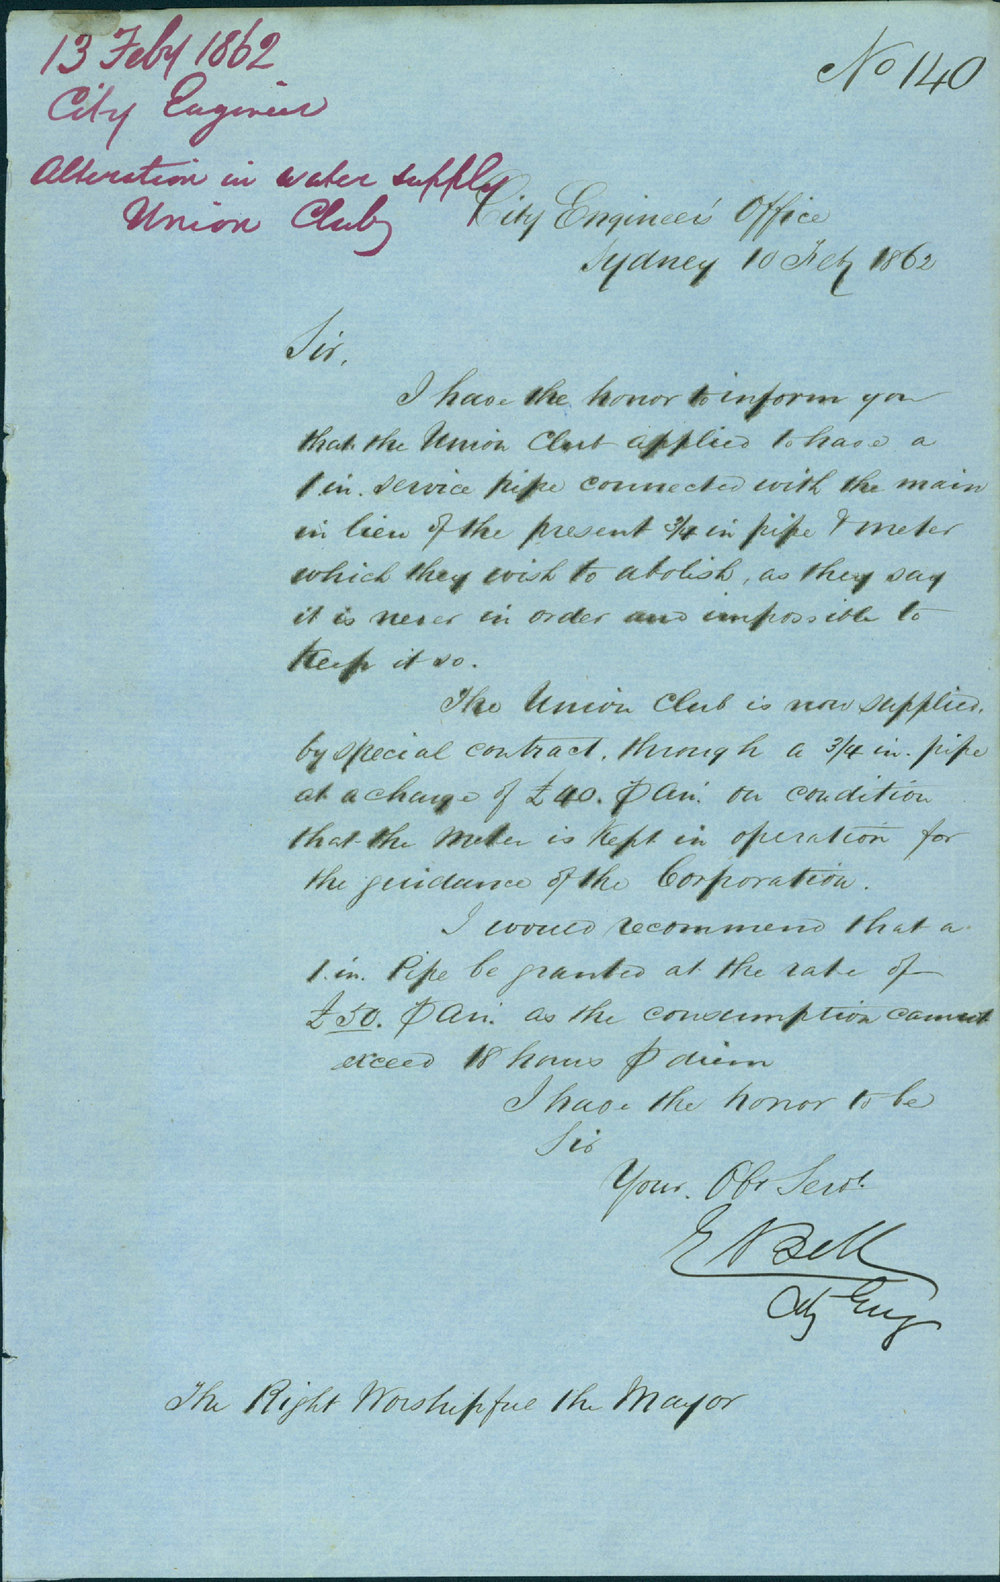 13 Feby 1862
City Engineer
Alteration in water supply
Union Club
No 140
City Engineer's Office
Sydney 10 Feby 1862
Sir,
I have the honor to inform you
that the Union Club applied to have a
1 in. service pipe connected with the main
in lieu of the present 3/4 in pipe & meter
which they wish to abolish, as they say
it is never in order and impossible to
keep it so.
The Union Club is now supplied,
by special contract, through a 3/4 in. pipe
at a charge of £40. ⅌ An. on condition
that the meter is kept in operation for
the guidance of the Corporation.
I would recommend that a
1 in. Pipe be granted at the rate of
£50. ⅌ An. as the consumption cannot
exceed 18 hours ⅌ diem
I have the honor to be
Sir
Your. Obt Servt.
E Bell
City Eng
The Right Worshipful the Mayor